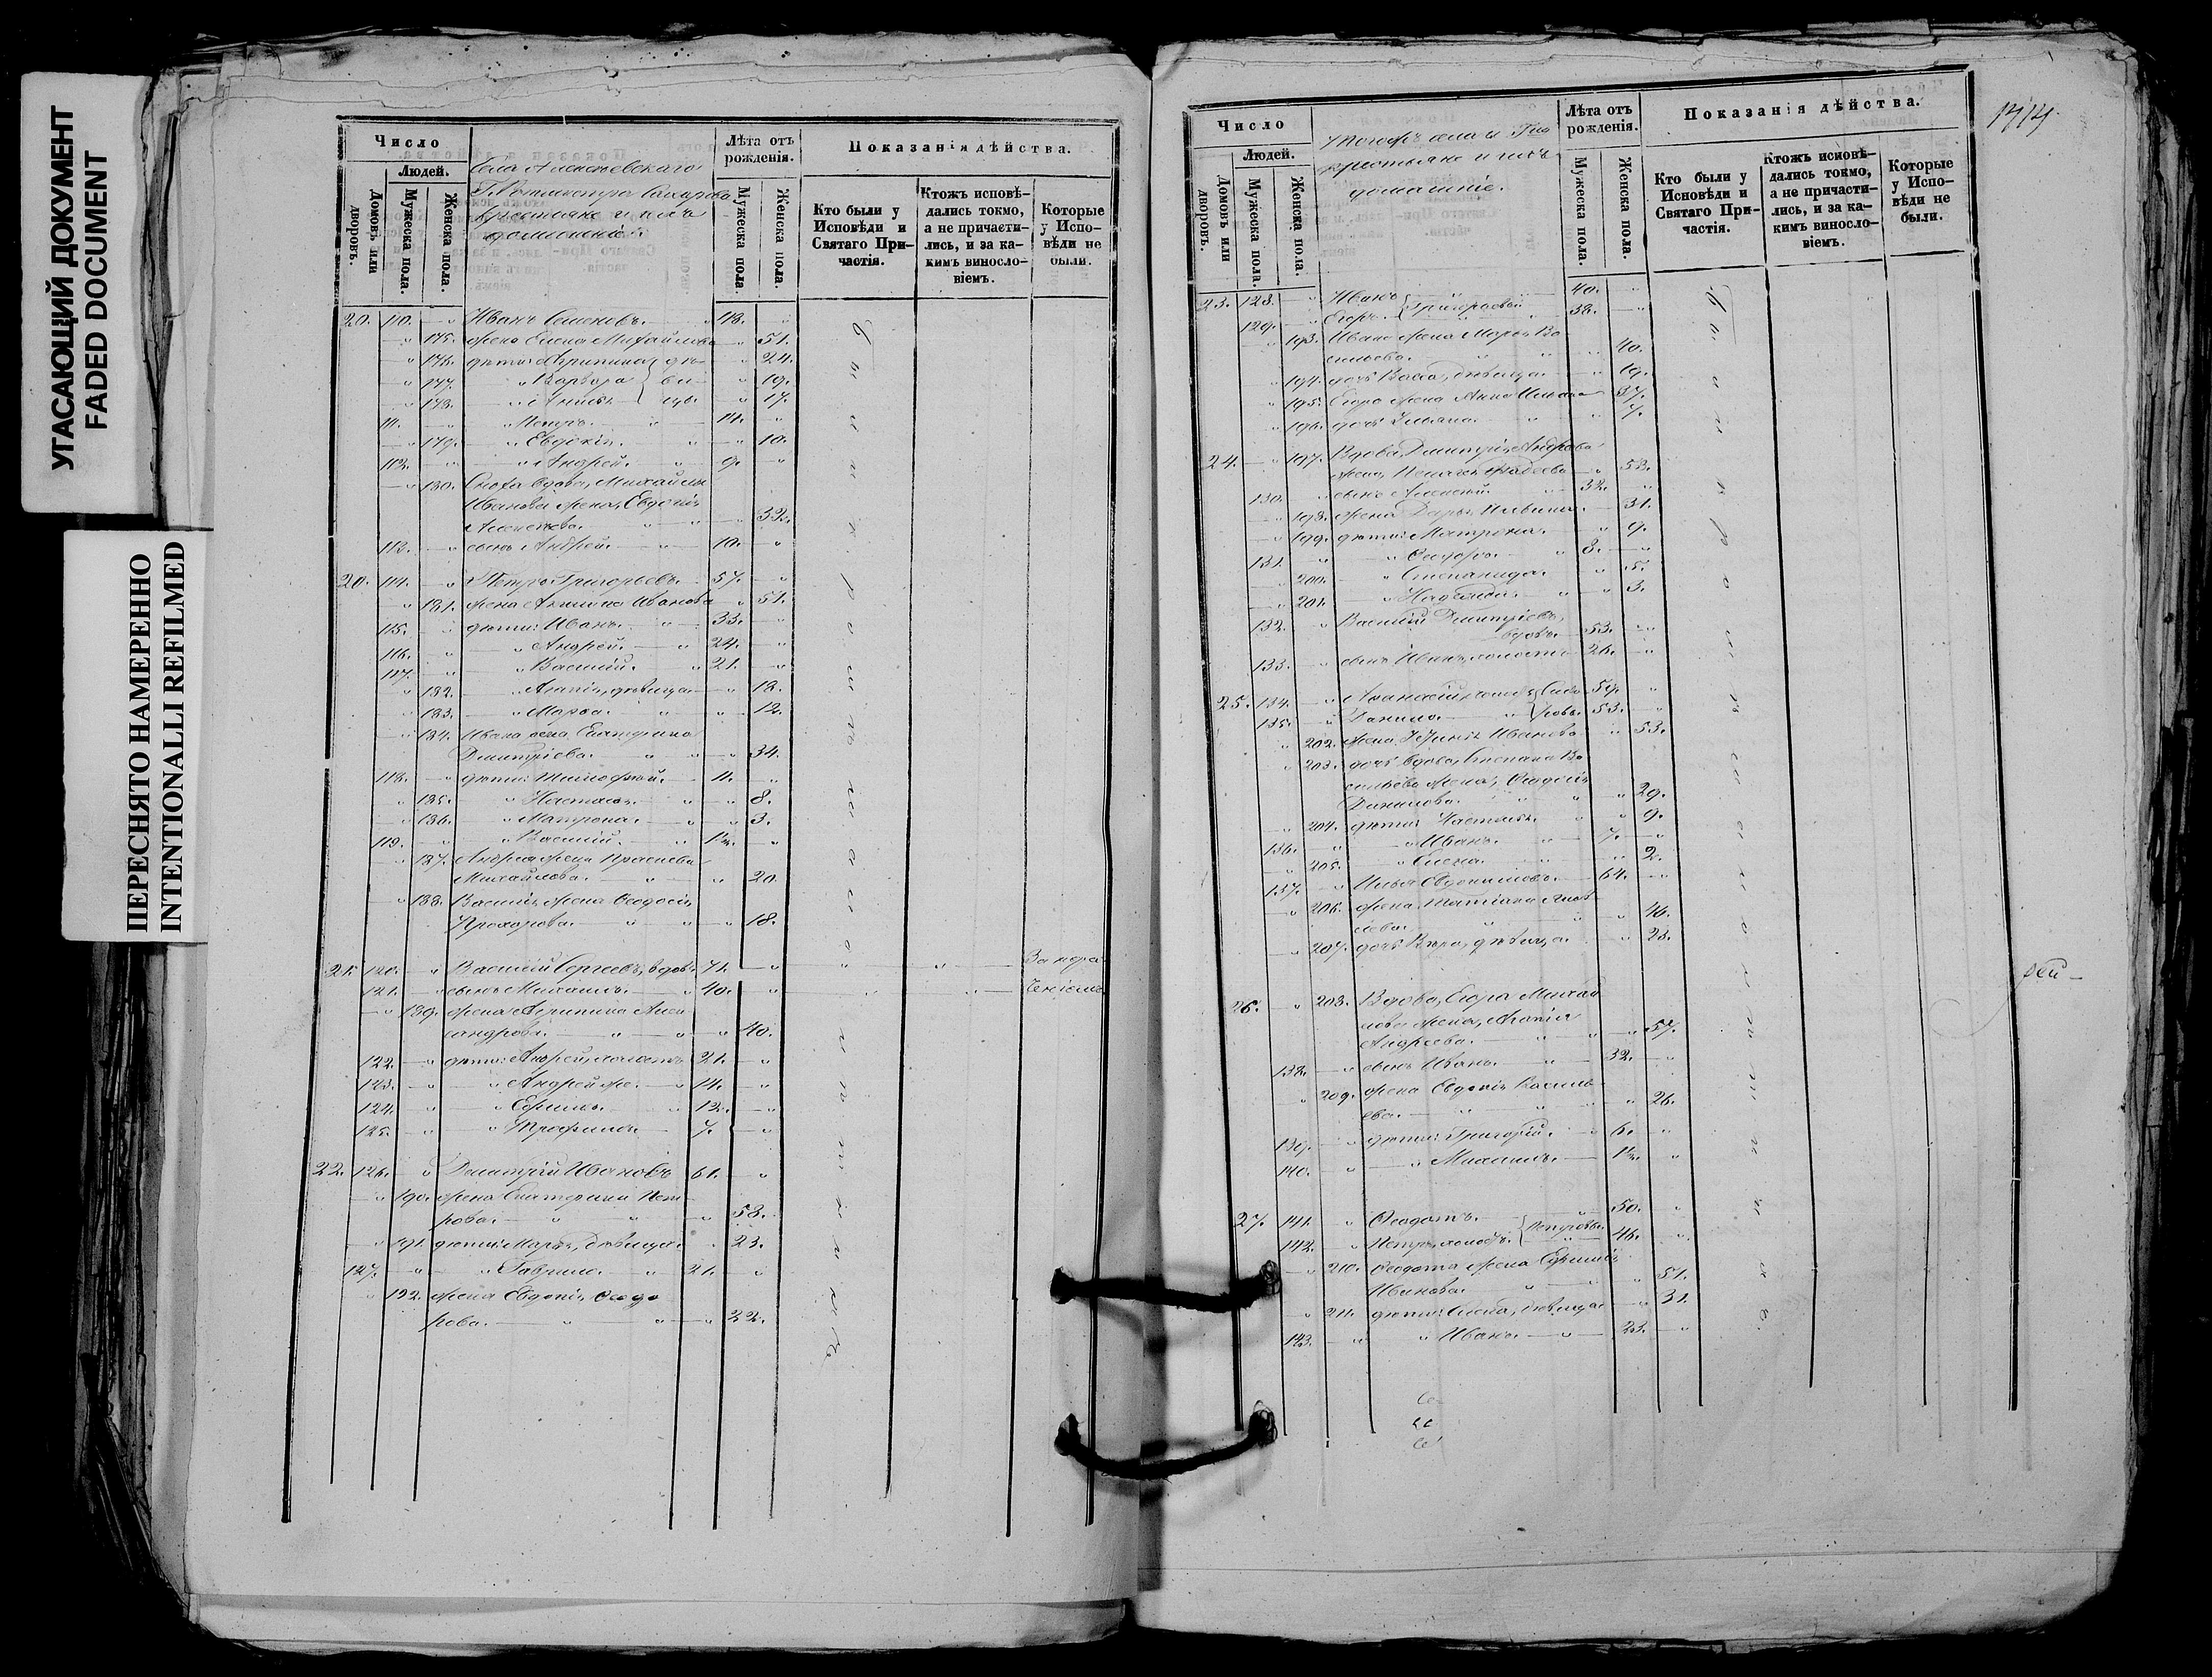 УГАСАЮЩИЙ ДОКУМЕНТ
FADED DOCUMENT
ПЕРЕСНЯТО НАМЕРЕННО
INTENTIONALLI REFILMED
Число
Людей.
Домовъ или дворовъ.
Мужеска пола.
Женска пола.
Села
крестьяне и ихъ
домашніе.
Лѣта отъ рожденія.
Мужеска пола.
Женска пола.
Показанія дѣйства.
Кто были у Исповѣди и Святаго Причастія.
Ктожъ исповѣдались токмо, а не причастились, и за какимъ винословіемъ.
Которые у Исповѣди не были.
20. 110. Иванъ Семеновъ. 48.
175. жена Елена Михайлова 51.
176. дѣти: Агрипина дѣ- 24.
177. Варвара ви- 19.
178. 17.
111. Петръ. 14.
179. Евдокія. 10.
112. Андрей. 9.
180. Сноха вдова, Михайлы
Иванова жена, Евдокія
Алексѣева. 32.
113. сынъ Андрей. 10.
20. 114. Петръ Григорьевъ. 57.
181. жена Акилина Иванова 51.
115. дѣти: Иванъ. 33.
116. Андрей. 24.
117. Василій. 21.
182. Агапія, дѣвица 18.
183. Марѳа. 12.
184. Ивана жена Екатерина
Дмитріева. 34.
118. дѣти: Тимофей. 11.
185. Настасья. 8.
186. Матрона. 3.
119. Василій. 1½.
187. Андрея жена Прасковья
Михайлова. 20.
188. Василія жена Ѳеодосія
Прохорова. 18.
21. 120. Василій Сергеевъ, вдовъ 71. За нера-
121. сынъ Михаилъ. 40. ченіемъ
189. жена Агрипина Алек-
сандрова. 40.
122. дѣти: Андрей, холостъ 21.
123. Андрей же. 14.
124. Ефимъ. 12.
125. Трофимъ. 7.
22. 126. Дмитрій Ивановъ 61.
190. жена Екатерина Пет-
рова. 58.
191. дѣти: Марья, дѣвица. 23.
127. Гаврило. 21.
192. жена Евдокія Ѳедо-
рова. 22.
Были
Число
Людей.
Домовъ или дворовъ.
Мужеска пола.
Женска пола.
тогожъ села
крестьяне и ихъ
домашніе.
Лѣта отъ рожденія.
Мужеска пола.
Женска пола.
Показанія дѣйства.
Кто были у Исповѣди и Святаго Причастія.
Ктожъ исповѣдались токмо, а не причастились, и за какимъ винословіемъ.
Которые у Исповѣди не были.
23. 128. Иванъ 40.
129. Егоръ Григорьевы 38.
193. Ивана жена Марья Ва-
сильева. 40.
194. дочь Васса, дѣвица 19.
195. Егора жена Анна Ильина 37.
196. дочь Ульяна. 7.
24. 197. Вдова, Дмитрія Андреева
жена, Пелагея Фадеева 53.
130. сынъ Алексѣй. 32.
198. жена Дарья Ильина. 31.
199. дѣти: Матрона. 9.
131. Ѳедоръ. 8.
200. Степанида. 5.
201. Надежда. 3.
132. Василій Дмитріевъ,
вдовъ. 53.
133. сынъ Иванъ, холостъ 26.
25. 134. Аѳанасій, холостъ 59.
135. Данило. 53.
202. жена Ксенія Иванова 53.
203. дочь вдова, Степана Ва-
сильева жена, Ѳеодосія
Данилова. 29.
204. дѣти: Настасья. 9.
136. Иванъ. 7.
205. Елена. 2.
137. Илья Евдокимовъ. 64.
206. жена Татіана Яков-
лева. 46.
207. дочь Вѣра, дѣвица. 23.
26. 208. Вдова, Егора Михай-
лова жена, Агапія
Андреева. 57.
138. сынъ Иванъ. 32.
209. жена Евдокія Василь-
ева. 26.
139. дѣти: Григорій. 6.
140. Михаилъ. 1½.
27. 141. Ѳеодотъ. 50.
142. Петръ, холостъ. Петровы 46.
210. Ѳеодота жена Ефимія
Иванова. 51.
211. дѣти: Елена, дѣвица 31.
143. Иванъ. 23.
Были
рей-